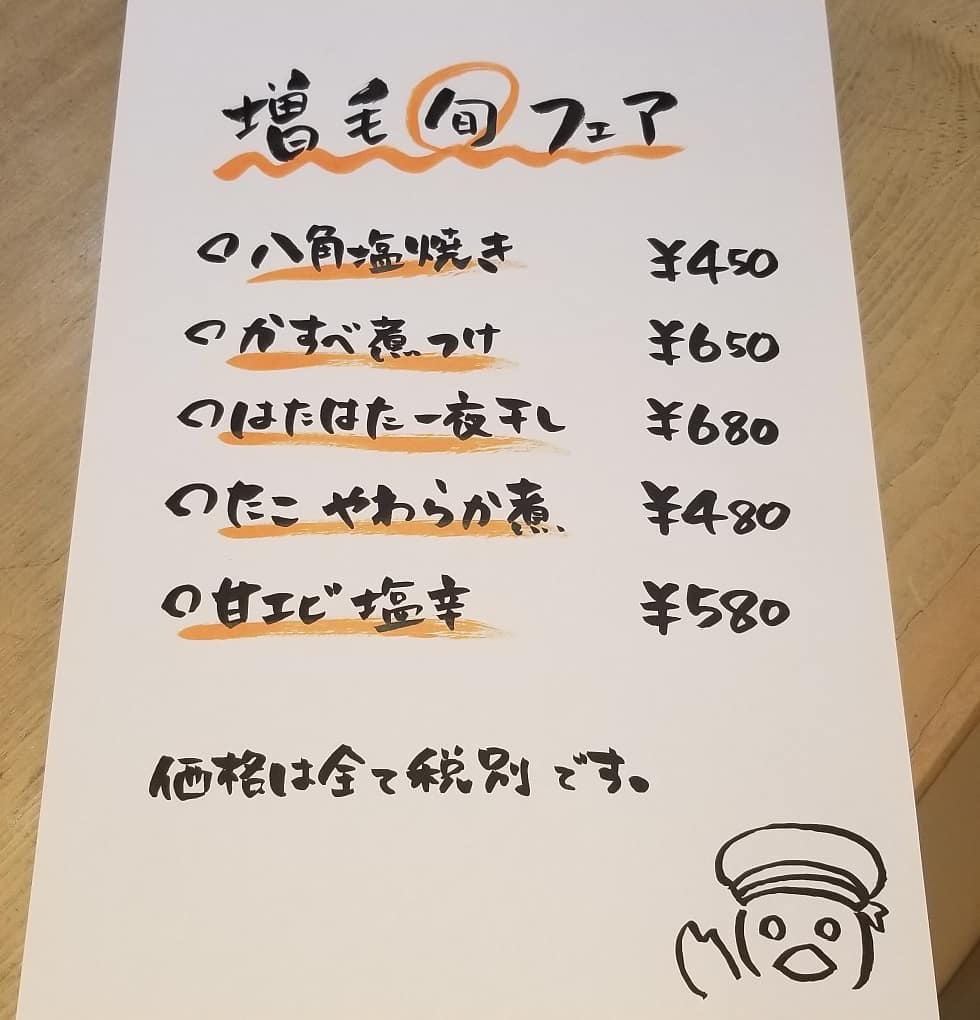 増毛旬フェア
○八角塩焼き ¥450
○かすべ煮つけ ¥650
○はたはた一夜干し ¥680
○たこ やわらか煮 ¥480
○甘エビ塩辛 ¥580
価格は全て税別です。